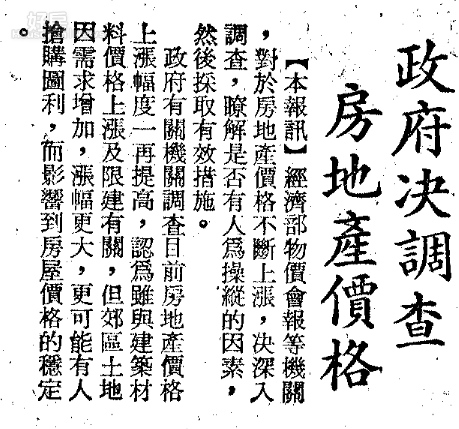 政府決調查
房地產價格
【本報訊】經濟部物價會報等機關
，對於房地產價格不斷上漲，決深入
調查，瞭解是否有人爲操縱的因素，
然後採取有效措施。
政府有關機關調查目前房地產價格
上漲幅度一再提高，認爲雖與建築材
料價格上漲及限建有關，但郊區土地
因需求增加，漲幅更大，更可能有人
搶購圖利，而影響到房屋價格的穩定
。